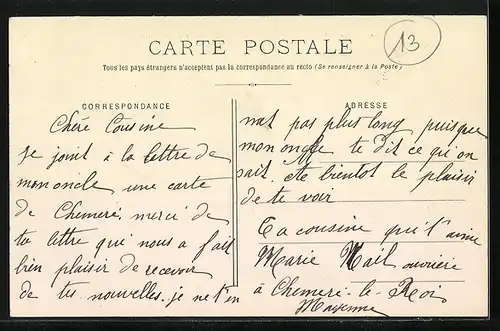 CARTE POSTALE
13
Tous les pays étrangers n'acceptent pas la correspondance au recto (Se renseigner à la Poste)
CORRESPONDANCE
Chère Cousine
Je joint à la lettre de
mon oncle une carte
de Chemeré. merci de
ta lettre qui nous a fait
bien plaisir de recevoir
de tes nouvelles. je ne t'en
ADRESSE
met pas plus long puisque
mon oncle te dit ce qu'on
sait. A bientot le plaisir
de te voir
Ta cousine qui t'aime
Marie Mail ouvriere
à Chemeré-le-Roi
Mayenne